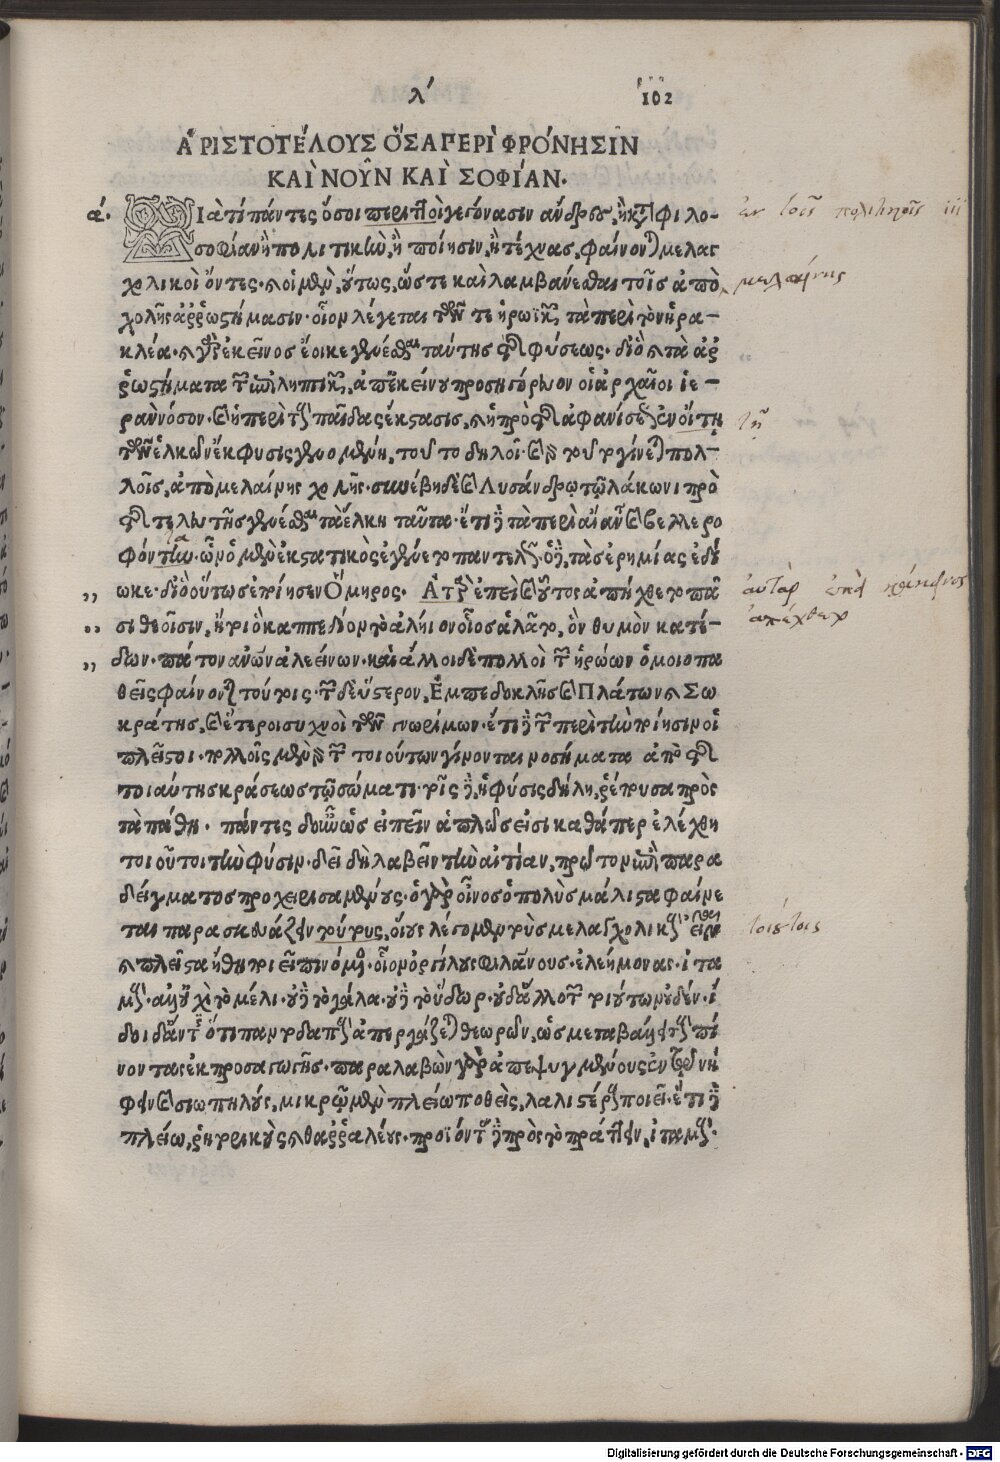 λʹ
102
ἈΡΙΣΤΟΤΈΛΟΥΣ ὍΣΑ ΠΕΡῚ ΦΡΌΝΗΣΙΝ
ΚΑῚ ΝΟΥ͂Ν ΚΑῚ ΣΟΦΊΑΝ.
ά. ΔΙὰ τί πάντες ὅσοι περιττοὶ γεγόνασιν ἄνδρες, ἢ κατὰ φιλο-
σοφίαν ἢ πολιτικὴν, ἢ ποίησιν, ἢ τέχνας, φαίνονται μελαγ
χολικοὶ ὄντες. καὶ οἱ μὲν, οὕτως, ὥστε καὶ λαμβάνεσθαι τοῖς ἀπὸ
χολῆς ἀῤῥωστήμασιν. οἷον λέγεται τῶν τε ἡρωϊκῶν, τὰ περὶ τὸν ἡρα-
κλέα. καὶ γὰρ ἐκεῖνος ἔοικε γενέσθαι ταύτης τῆς φύσεως. διὸ καὶ τὰ ἀρ
ῥωστήματα τῶν ἐπιληπτικῶν, ἀπ' ἐκείνου προσηγόρευον οἱ ἀρχαῖοι ἱε-
ρὰν νόσον. καὶ ἡ περὶ τοὺς παῖδας ἔκστασις, καὶ ἡ πρὸ τῆς ἀφανίσεως ἐν οἴτη
τῶν ἑλκῶν ἔκφυσις γενομένη, τοῦτο δηλοῖ. καὶ γὰρ τοῦτο γίνεται πολ-
λοῖς, ἀπὸ μελαίνης χολῆς. συνέβη δὲ καὶ Λυσάνδρῳ τῷ λάκωνι πρὸ
τῆς τελευτῆς γενέσθαι τὰ ἕλκη ταῦτα. ἔτι δὲ τὰ περὶ αἴαντα καὶ βελλερο
φόντην. ὧν ὁ μὲν ἐκστατικὸς ἐγένετο παντελῶς. ὁ δὲ, τὰς ἐρημίας ἐδί
ωκε. διὸ οὕτως ἐποίησεν Ὅμηρος. Ἀτὰρ ἐπεὶ καὶ οὗτος ἀπήχθετο πᾶ
σι θεοῖσιν, ἤτοι ὁ καππεδίον τὸ ἀλήιον οἶος ἀλᾶτο, ὃν θυμὸν κατέ-
δων. πάτον ἀνθρώπων ἀλεείνων. καὶ ἄλλοι δὲ πολλοὶ τῶν ἡρώων ὁμοιοπα
θεῖς φαίνονται τούτοις. τῶν δὲ ὕστερον, Ἐμπεδοκλῆς καὶ Πλάτων καὶ Σω
κράτης, καὶ ἕτεροι συχνοὶ τῶν γνωρίμων. ἔτι δὲ τῶν περὶ τὴν ποίησιν οἱ
πλεῖστοι. πολλοῖς μὲν γὰρ τῶν τοιούτων γίνονται νοσήματα ἀπὸ τῆς
τοιαύτης κράσεως τῷ σώματι. τοῖς δὲ, ἡ φύσις δήλη, ῥέπουσα πρὸς
τὰ πάθη. πάντες δ' οὖν ὡς εἰπεῖν ἁπλῶς εἰσὶ καθάπερ ἐλέχθη
τοιοῦτοι τὴν φύσιν. δεῖ δὴ λαβεῖν τὴν αἰτίαν, πρῶτον ἐπὶ παρα
δείγματος προχειρισαμένους. ὁ γὰρ οἶνος ὁ πολὺς μάλιστα φαίνε
ται παρασκευάζειν τούτους, οἵους λέγομεν τοὺς μελαγχολικοὺς εἶναι
καὶ πλεῖστα ἤθη ποιεῖ πινόμενος. οἷον ὀργίλους φιλανους. ἐλεήμονας. ἰτα
μούς. ἀλλ' οὐχὶ τὸ μέλι. οὐδὲ τὸ γάλα. οὐδὲ τὸ ὕδωρ. οὐδ' ἄλλο τῶν τοιούτων οὐδέν. ἴ
δοι δ' ἄν τις ὅτι παντοδαποὺς ἀπεργάζεται θεωρῶν, ὡς μεταβάλλει τοὺς πί
νοντας ἐκ προσαγωγῆς. παραλαβὼν γὰρ ἀπεψυγμένους ἐν τῷ νή
φειν καὶ σιωπηλούς, μικρῷ μὲν πλείω ποθεὶς, λαλιστέρους ποιεῖ. ἔτι δὲ
πλείω, ῥητορικοὺς καὶ θαῤῥαλέους. προϊόντας δὲ πρὸς τὸ πράττειν, ἰταμούς.
μελαίνης
τῇ
αὐτὰρ
ἀπέχθετο
τοιούτους
Digitalisierung gefördert durch die Deutsche Forschungsgemeinschaft - DFG